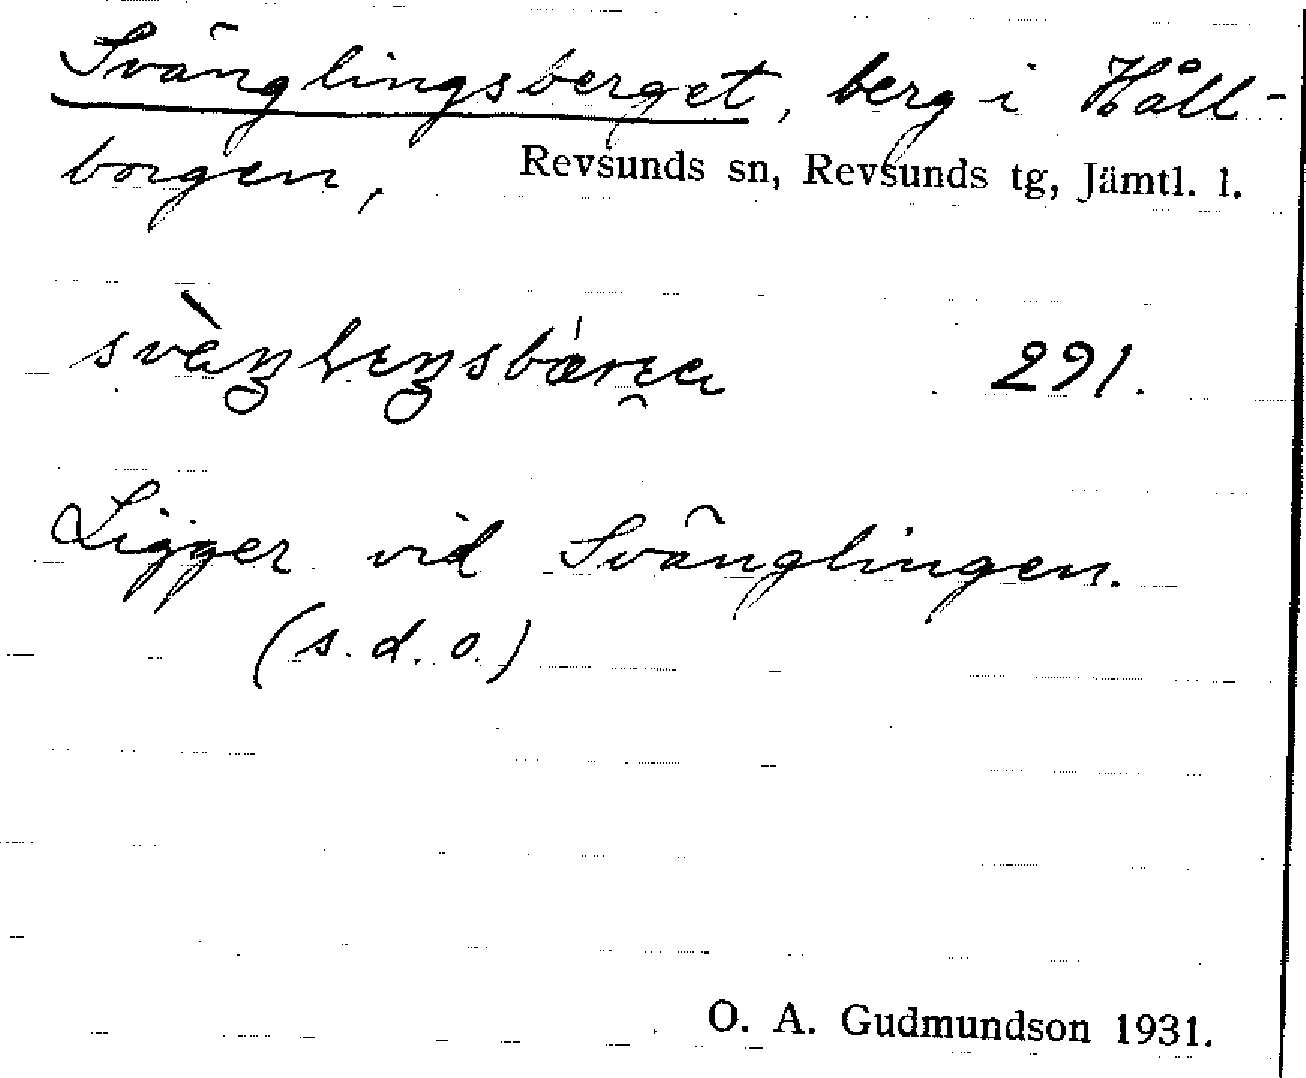 Svänglingsberget, berg i Håll-
borgen, Revsunds sn, Revsunds tg, Jämtl. l.
291.
Ligger vid Svänglingen.
(s. d. o.)
O. A. Gudmundson 1931.